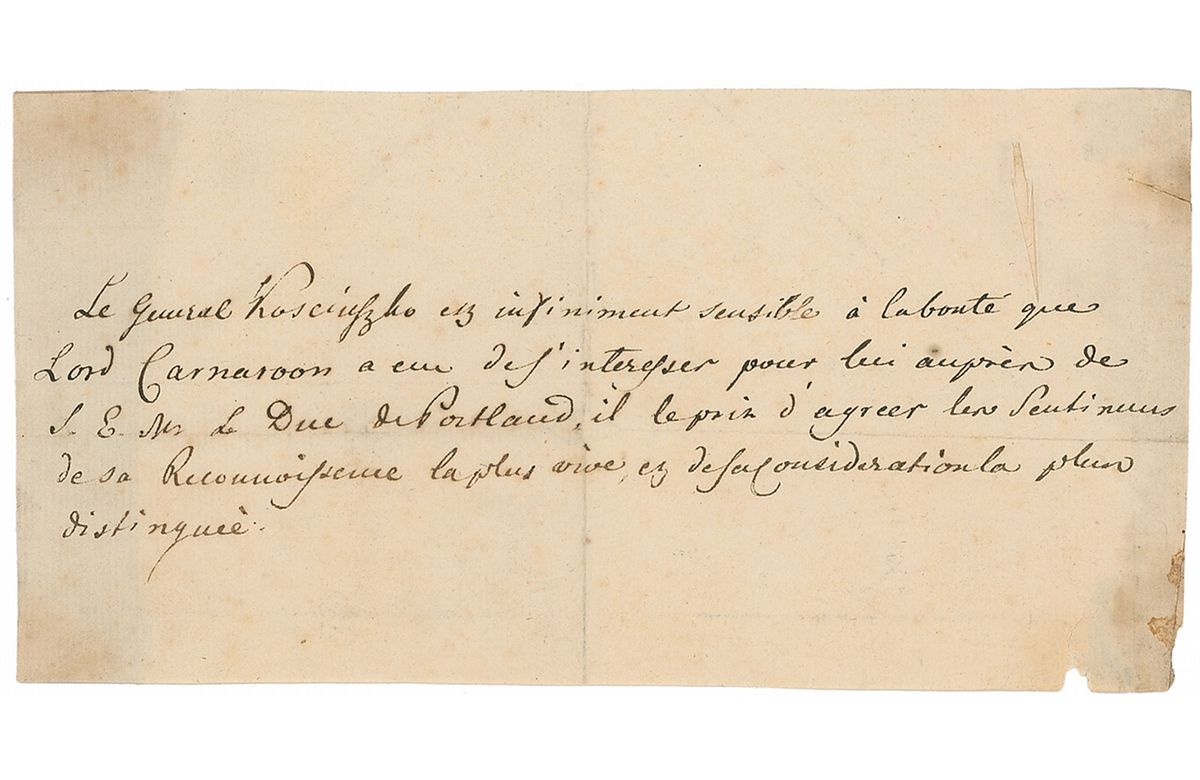 Le General Kosciuszko est infiniment sensible à la bonté que
Lord Carnarvon a eue de s'interesser pour lui auprès de
S. E. Mr Le Duc de Portland, il le prie d'agreer les Sentimens
de sa Reconnoissence la plus vive, et de sa Consideration la plus
distinguée.